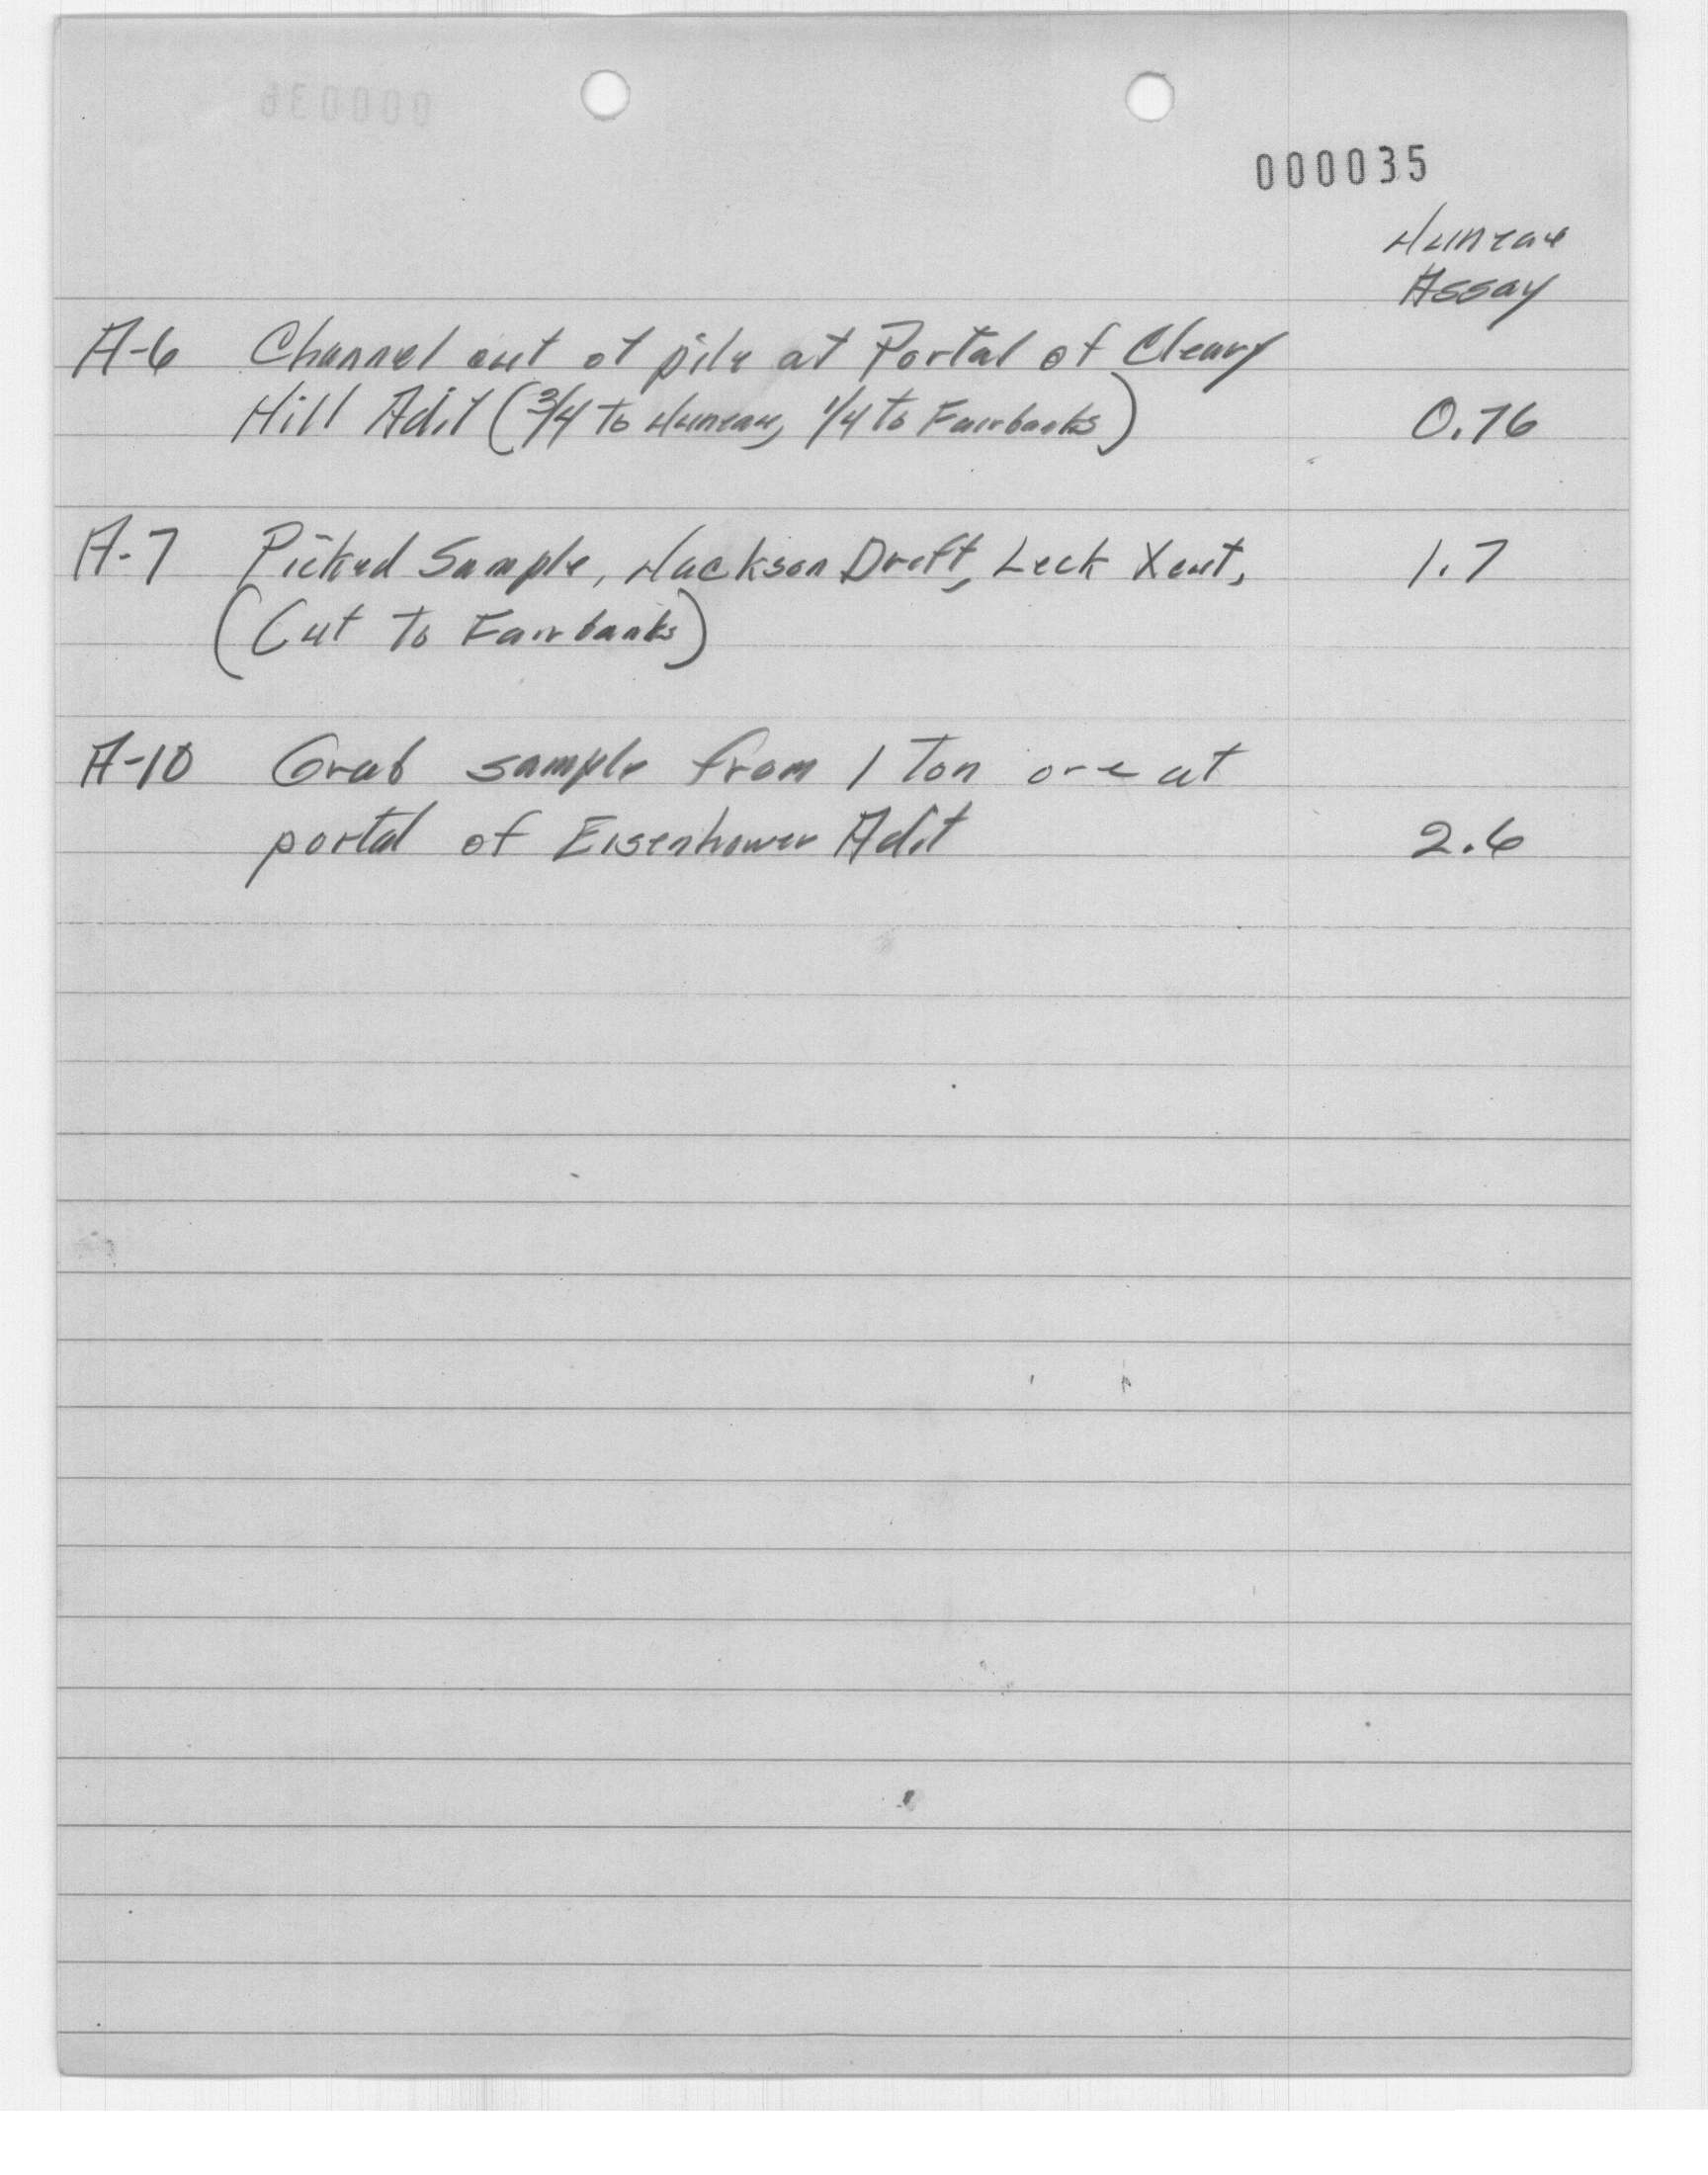 000036
000035
Juneau
Assay
A-6 Channel cut of pile at Portal of Cleary
Hill Adit (3/4 to Juneau, 1/4 to Fairbanks) 0.76
A-7 Picked Sample, Jackson Drift, Xcut, 1.7
(Cut to Fairbanks)
A-10 Grab sample from 1 Ton ore at
portal of Eisenhower Adit 2.6